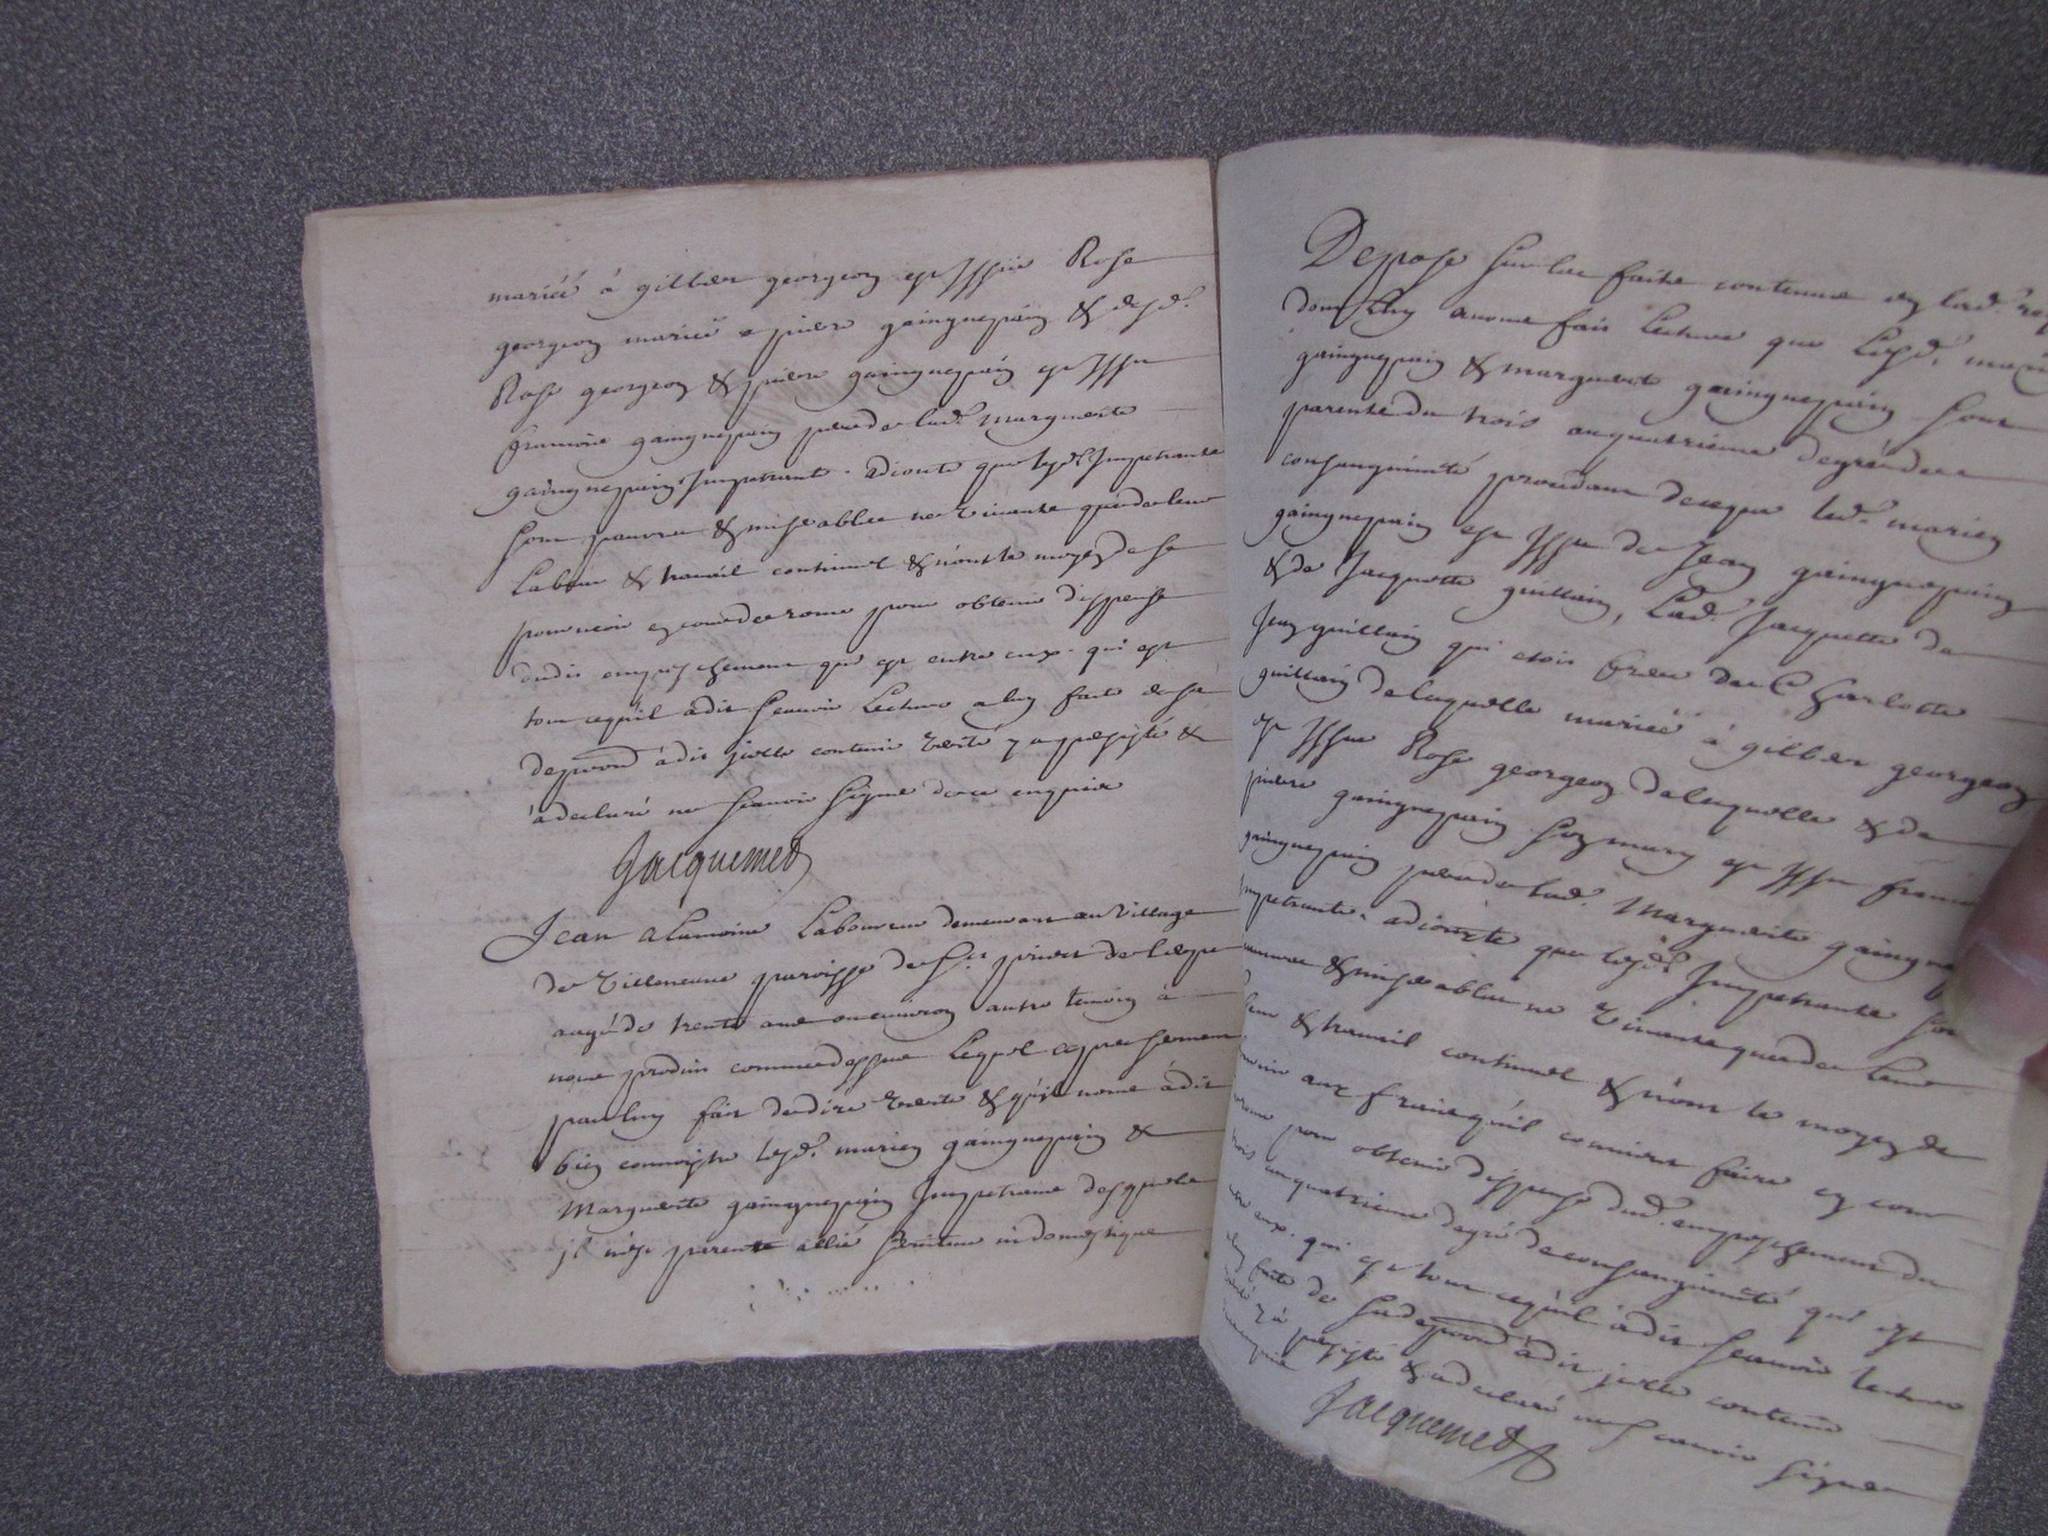 mariéé à gilber georgeon est Issüe Rose
georgeon mariéé a piere gaingnepain & desd.
Rose georgeon & piere gaingnepain est Issu
francoise gaingnepain pere de lad. marguerite
gaingnepain Impetrante. adioute que lesd. Impetrants
sont pauvres & miserables ne vivants que de leur
Labeur & travail continuel & n'ont le moyen de se
pourveoir en cour de rome pour obtenir dispense
dudit empeschement qui est entre eux. qui est
tout ce qu'il à dit scavoir Lecture a luy faite de sa
depposon à dit jcelle contenir verité y a persisté &
à declaré ne scavoir signer de ce enquis
Jacquemet
Jean alamoine Laboureur demeurant au village
de villeneuve paroisse de St. priest de
aagé de trente ans ou environ autre temoin à
nous produit comme dessus Lequel apres serment
par luy fait de dire verité & qu'il nous à dit
bien connoistre lesd. marien gaingnepain &
Marguerite gaingnepain Impetrants desquels
jl n'est parent allié serviteur ni domestique
Deppose sur les faits contenus en lad.
dont luy avons fait Lecture que Lesd. marien
gaingnepain & marguerite gaingnepain sont
parents du trois au quatrieme degré de
consanguinité provenant de ce que led. marien
gaingnepain est Issu de Jean gaingnepain
& de Jacquette guillain, Lad. Jacquette de
Jean guillain qui etoit frere de Charlotte
guillain de laquelle mariéé à gilber georgeon
est Issue Rose georgeon de laquelle & de
piere gaingnepain son mary est Issu
gaingnepain pere de lad. Marguerite
Impetrante. adioute que lesd. Impetrants sont
pauvres & miserables ne vivants que de leur
& travail continuel & n'ont le moyen de
aux frais qu'il convient faire en cour
rome pour obtenir dispense dud. empeschement du
trois au quatrieme degré de consanguinité qui est
eux. qui est tout ce qu'il à dit scavoir lecture
luy faite de sa depposon à dit jcelle contenir
verité y à persisté & a declaré ne scavoir signer
enquis
Jacquemet